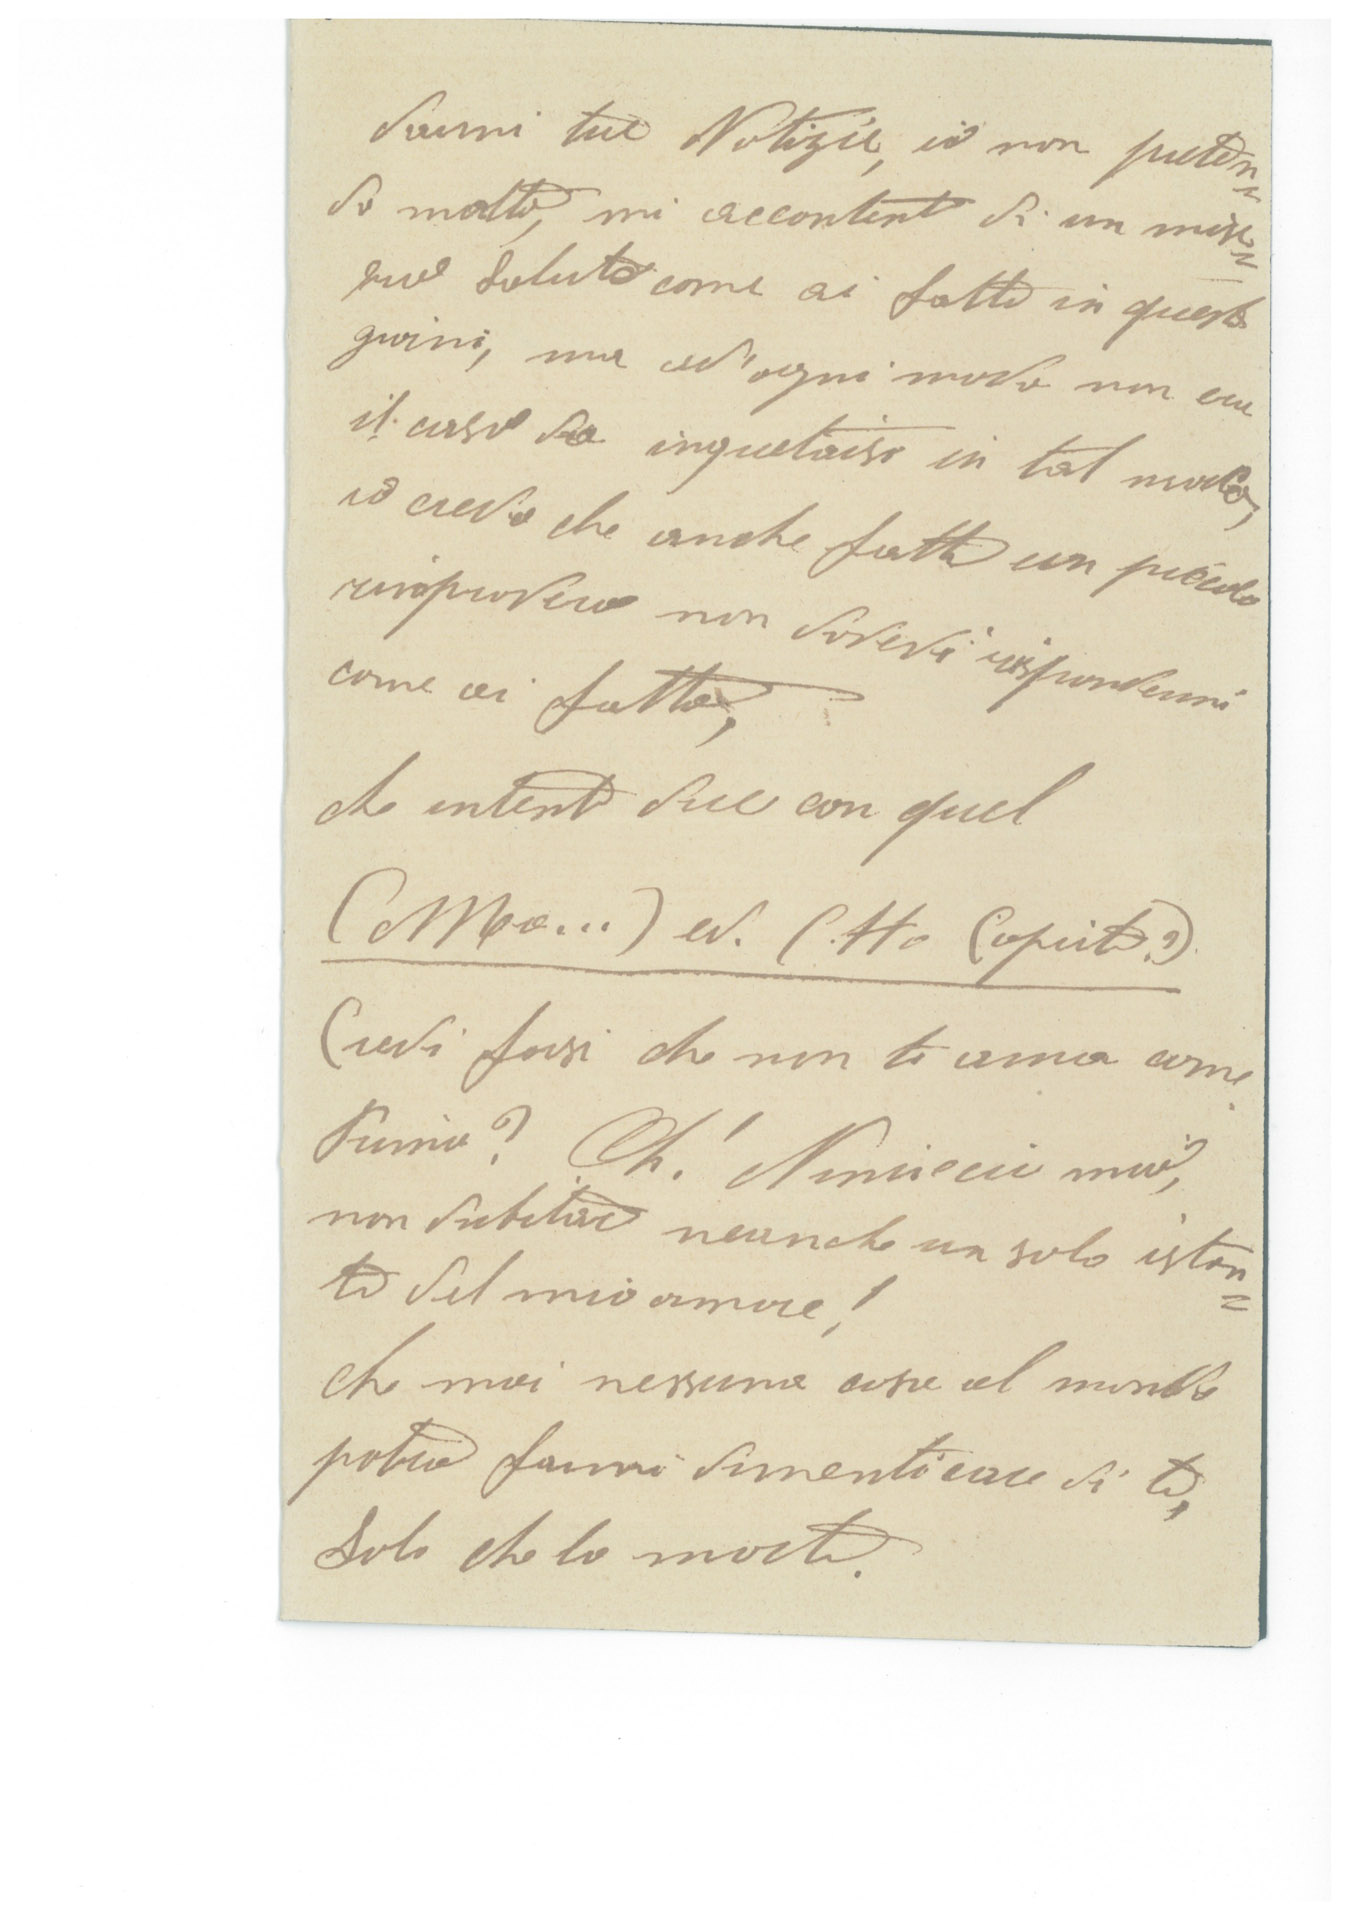 darmi tue Notizie, io non preten=
do molto, mi accontento di un mise=
ro saluto come ai fatto in questi
giorni, ma ad'ogni modo non era
il caso da inquetarsi in tal modo,
io credo che anche fatto un piccolo
rimprovero non dovevi rispondermi
come ai fatto,
che intendi dire con quel
(Ma...) ed. (Ho Capito?)
Credi forsi che non ti ama come
Prima? Oh! mio,
non dubitare neanche un solo istan=
te del mio amore!
che mai nessuna cosa al mondo
potrà farmi dimenticare di te,
Solo che la morte.